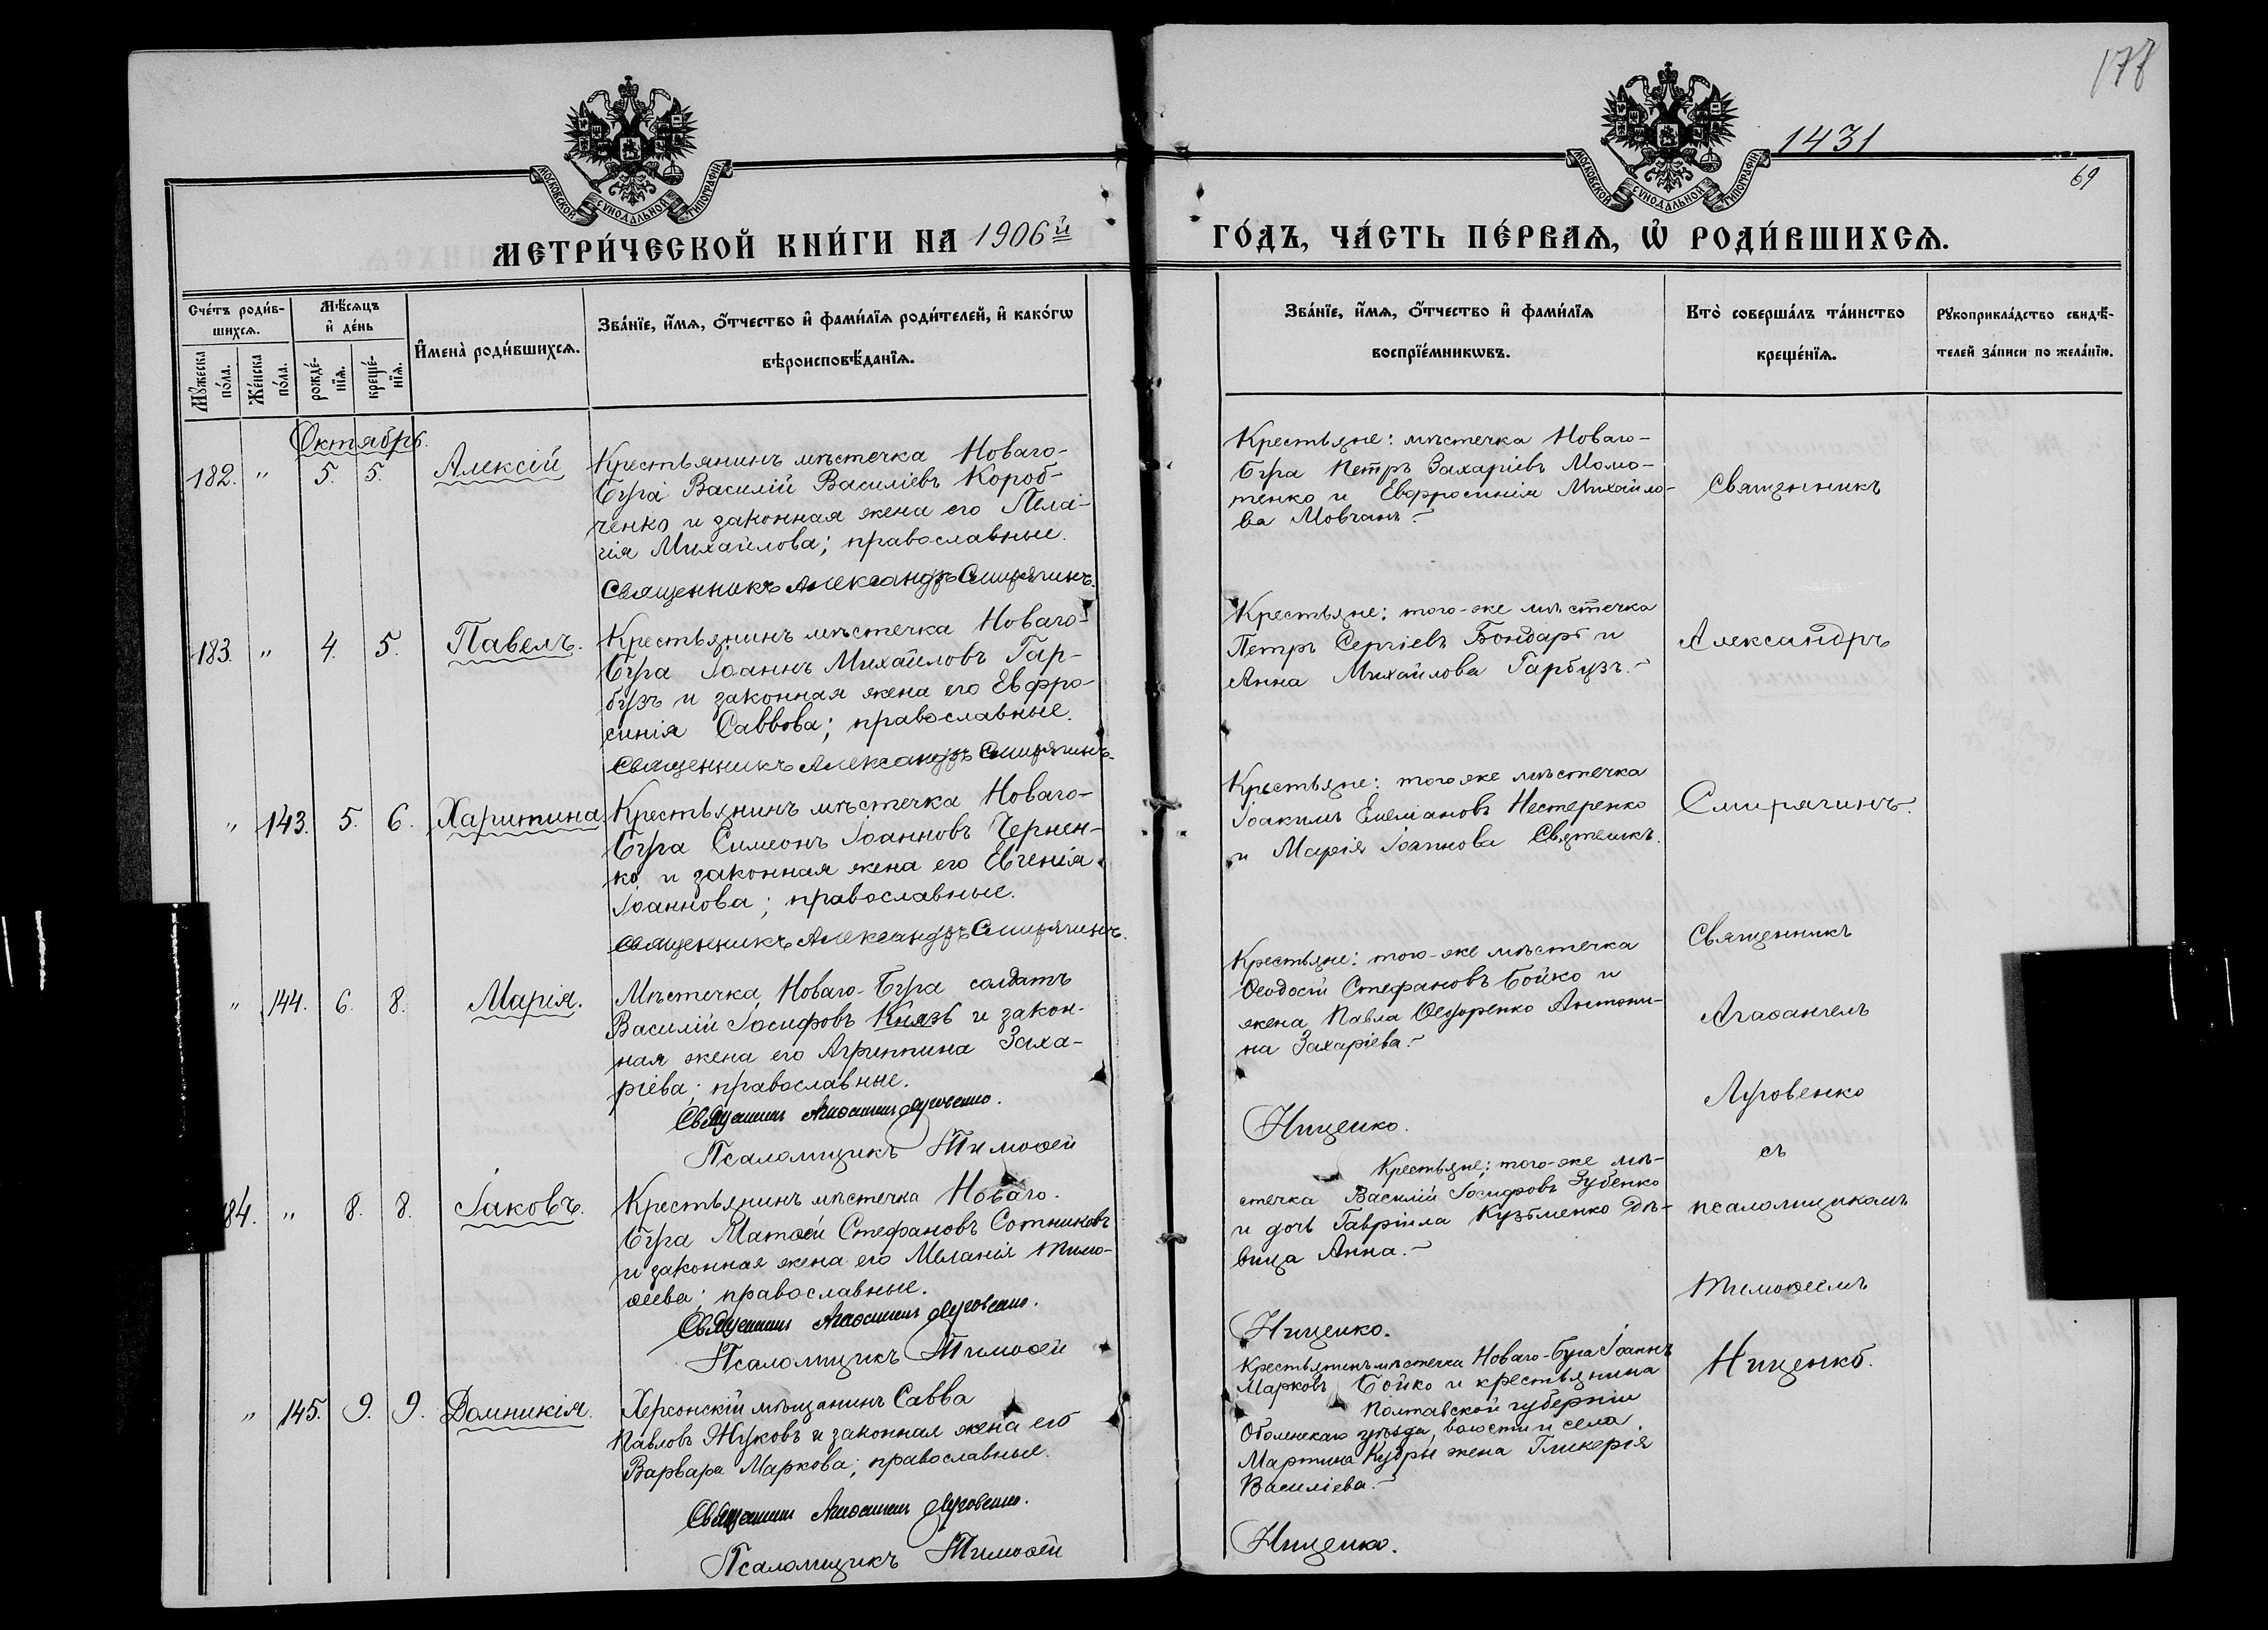 178
1431
69
МОСКОВСКОЙ СѴНОДАЛЬНОЙ ТИПОГРАФІИ
МОСКОВСКОЙ СѴНОДАЛЬНОЙ ТИПОГРАФІИ
МЕТРИ́ЧЕСКОЙ КНИ́ГИ НА 1906й
ГО́ДЪ, ЧА́СТЬ ПЕ́РВАѦ, Ѡ РОДИ́ВШИХСѦ.
Сче́тъ роди́в-
шихсѧ.
Мꙋ́жеска
по́ла.
Же́нска
по́ла.
Мѣ́сѧцъ
и҆ де́нь
рожде́-
нїѧ.
креще́-
нїѧ.
И҆мена̀ роди́вшихсѧ.
Зва́нїе, и҆́мѧ, ѻ҆́тчество и҆ фами́лїѧ роди́телей, и҆ како́гѡ
вѣроисповѣ́данїѧ.
Зва́нїе, и҆́мѧ, ѻ҆́тчество и҆ фами́лїѧ
воспрїе́мникѡвъ.
Кто̀ соверша́лъ та́инство
креще́нїѧ.
Рꙋкоприкла́дство свидѣ́-
телей за́писи по жела́нїю.
Октябрь.
182. " 5. 5. Алексій
Крестьянинъ мѣстечка Новаго-
Буга Василій Василіевъ Короб-
ченко и законная жена его Пела-
гія Михайлова; православные.
Священникъ Александръ Смирягинъ.
Крестьяне: мѣстечка Новаго-
Буга Петръ Захаріевъ Момо-
тенко и Евфросинія Михайло-
ва Мовчанъ.
Священникъ
183. " 4. 5. Павелъ.
Крестьянинъ мѣстечка Новаго-
Буга Іоаннъ Михайловъ Гар-
бузъ и законная жена его Евфро-
синія Саввова; православные.
Священникъ Александръ Смирягинъ.
Крестьяне: того-же мѣстечка
Петръ Сергіевъ Бондарь и
Анна Михайлова Гарбузъ.
Александръ
" 143. 5. 6. Харитина
Крестьянинъ мѣстечка Новаго-
Буга Симеонъ Іоанновъ Чернен-
ко и законная жена его Евгенія
Іоаннова; православные.
Священникъ Александръ Смирягинъ.
Крестьяне: того же мѣстечка
Іоакимъ Емеліановъ Нестеренко
и Марія Іоаннова
Смирягинъ.
" 144. 6. 8. Марія.
Мѣстечка Новаго-Буга солдатъ
Василій Іосифовъ Князь и закон-
ная жена его Агриппина Заха-
ріева; православные.
Священникъ Агаѳангелъ Луговенко.
Псаломщикъ Тимоѳей
Крестьяне: того-же мѣстечка
Ѳеодосій Стефановъ Бойко и
жена Павла Ѳедоренко Антони-
на Захаріева.
Нищенко.
Священникъ
Агаѳангелъ
Луговенко
съ
184. " 8. 8. Іаковъ.
Крестьянинъ мѣстечка Новаго-
Буга Матѳей Стефановъ Сотниковъ
и законная жена его Меланія Тимо-
ѳеева; православные.
Священникъ Агаѳангелъ Луговенко.
Псаломщикъ Тимоѳей
Крестьяне: того-же мѣ-
стечка Василій Іосифовъ Зубенко
и дочь Гавріила Кузьменко дѣ-
вица Анна.
Нищенко.
псаломщикомъ
Тимоѳеемъ
Нищенко.
" 145. 9. 9. Домникія.
Херсонскій мѣщанинъ Савва
Павловъ Жуковъ и законная жена его
Варвара Маркова; православные.
Священникъ Агаѳангелъ Луговенко.
Псаломщикъ Тимоѳей
Крестьянинъ мѣстечка Новаго-Буга Іоаннъ
Марковъ Бойко и крестьянина
Полтавской губерніи
уѣзда, волости и села
Мартина Кудры жена Гликерія
Василіева.
Нищенко.